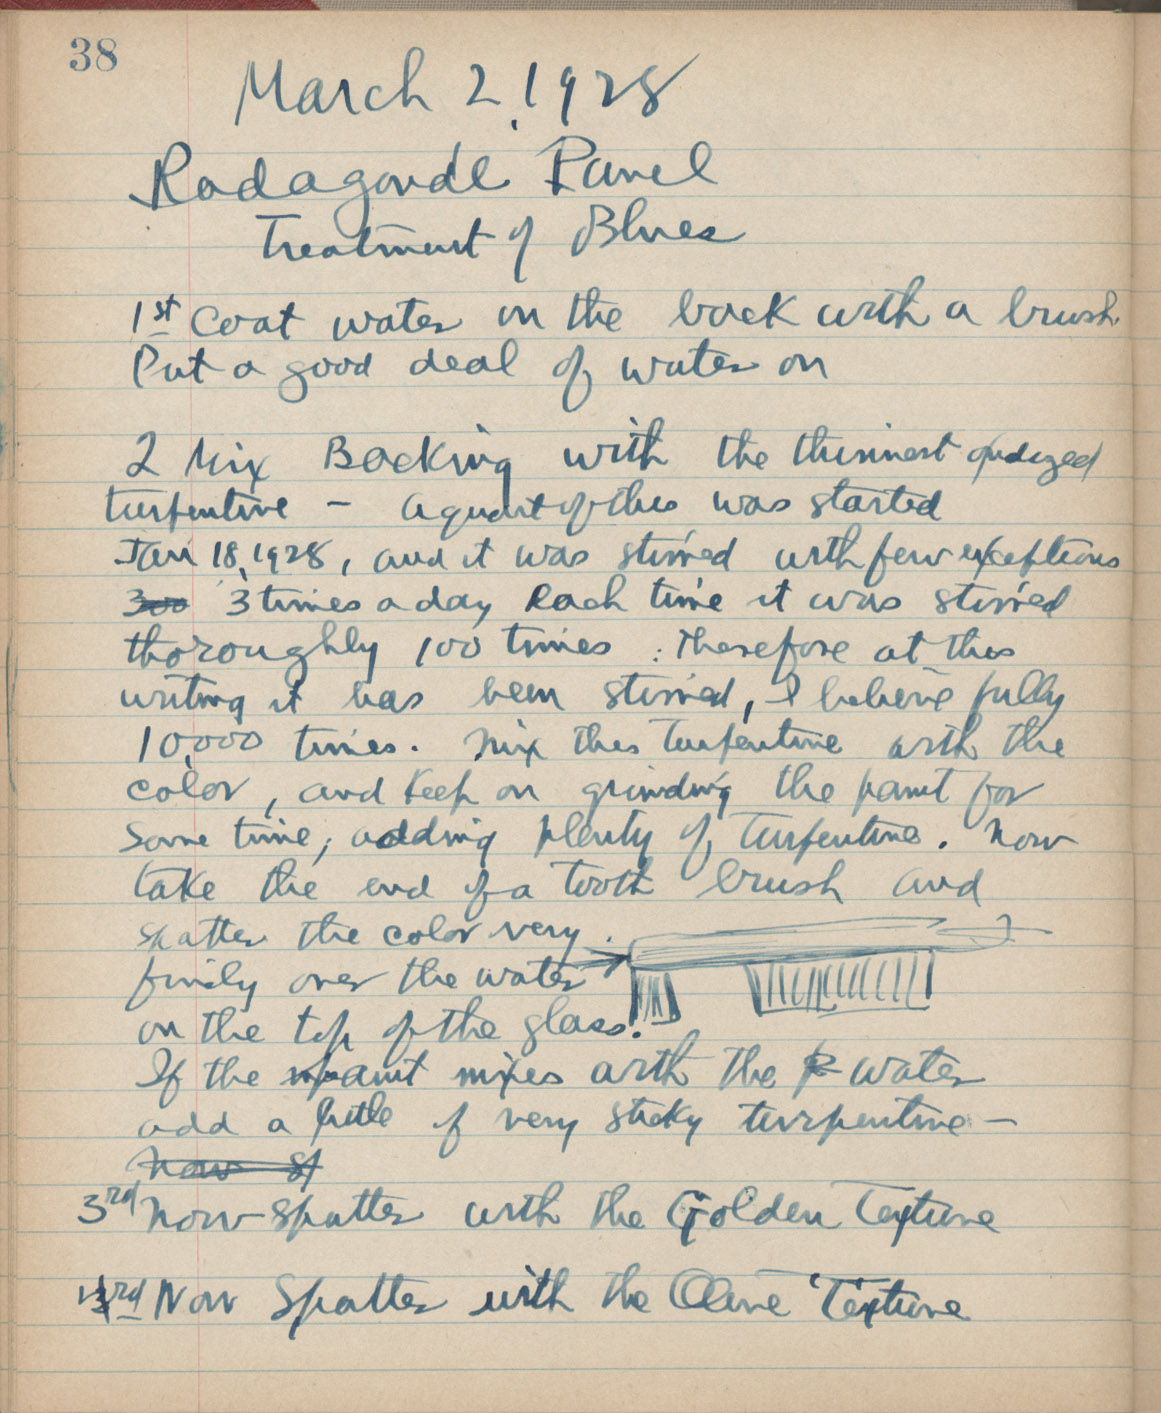 38
March 2, 1928
Radagonde Panel
Treatment of Blues
1st Coat water on the back with a brush.
Put a good deal of water on
2 Mix Backing with the thinnest oxidized
turpentine — a quart of this was started
Jan 18, 1928, and it was stirred with few exceptions
300 3 times a day Each time it was stirred
thoroughly 100 times. Therefore at this
writing it has been stirred, I believe fully
10,000 times. Mix this Turpentine with the
color, and keep on grinding the paint for
some time, adding plenty of Turpentine. Now
take the end of a tooth brush and
spatter the color very
finely over the water
on the top of the glass.
If the paint mixes with the water
add a little of very sticky turpentine —
Now Sp
3rd Now spatter with the Golden Texture
rd Now Spatter with the Olive Texture